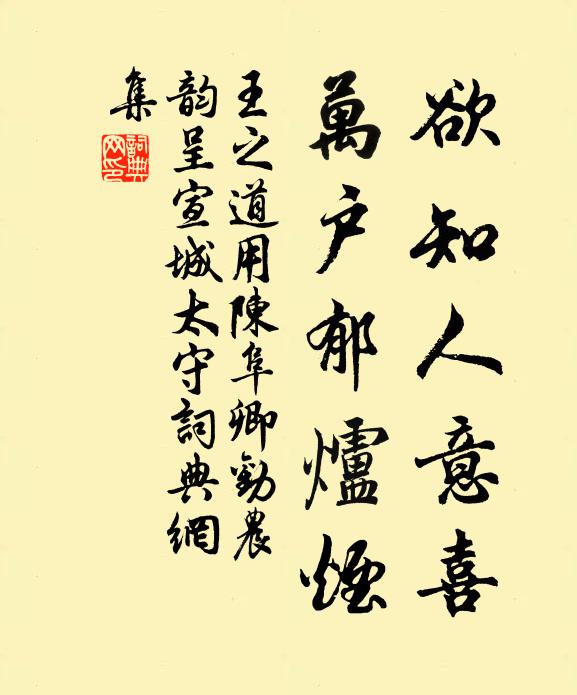 欲知人意喜
萬戶郁爐煙
王之道用陳阜卿勸農
韵呈宣城太守詞典網
集
詞典
网印